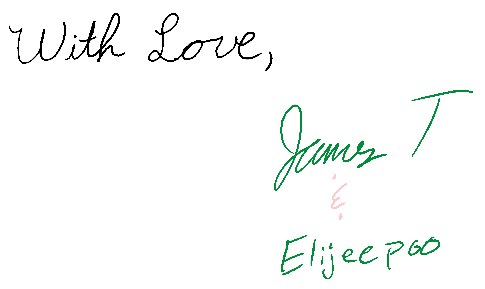 With Love,
James T
&
Elijeepoo